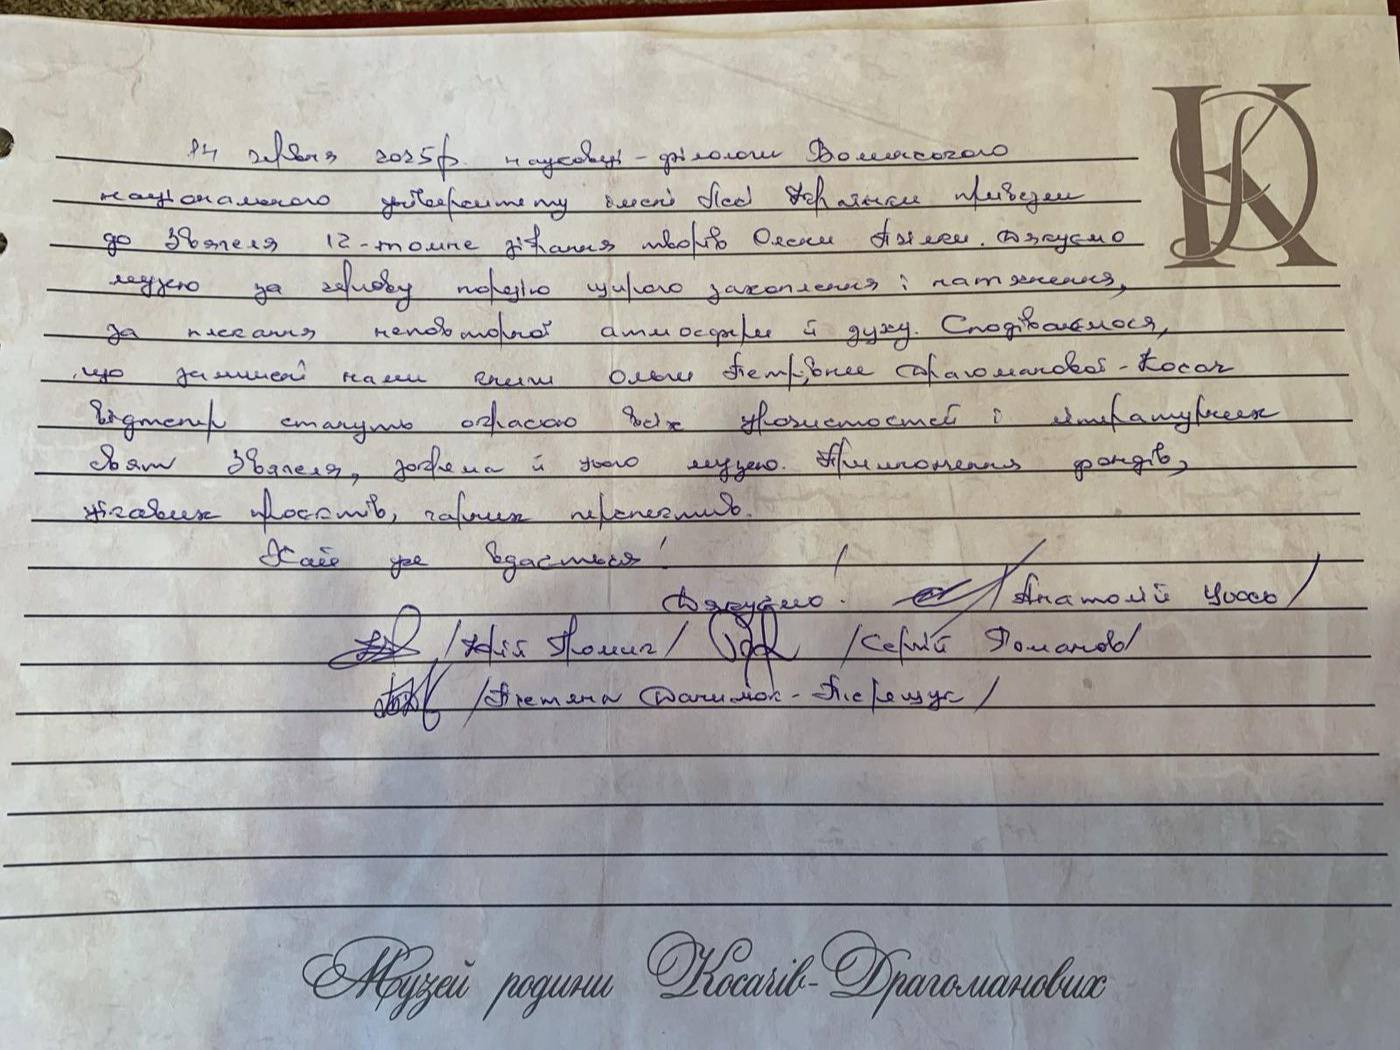 14 червня 2025р. науковці-філологи Волинського
національного університету імені Лесі Українки привезли
до Звягеля 12-томне зібрання творів Олени Пчілки. Дякуємо
музею за чергову порцію щирого захоплення і натхнення,
за плекання неповторної атмосфери й духу. Сподіваємося,
що залишені нами книги Ольги Петрівни Драгоманової-Косач
відтепер стануть окрасою всіх урочистостей і літературних
свят Звягеля, зокрема й цього музею. Примноження фондів,
цікавих проєктів, гарних перспектив.
Хай усе вдасться!
Дякуємо. /Анатолій /
/Юрій Громик/ /Сергій Романов/
/Тетяна Данилюк-Терещук/
Музей родини Косачів-Драгоманових